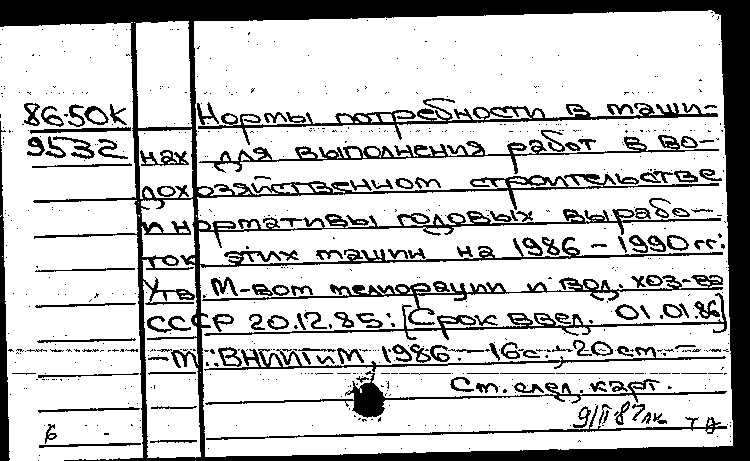 86-50К Нормы потребности в маши-
9532 нах для выполнения работ в во-
дохозяйственном строительстве
и нормативы годовых вырабо-
ток этих машин на 1986 – 1990 гг:
Утв. М-вом мелиорации и вод. хоз-ва
СССР 20.12.85: [Срок введ. 01.01.86]
– М.: ВНИИГиМ, 1986. – 16с.; 20см. –
Ст. след. карт.
9/II-87
6